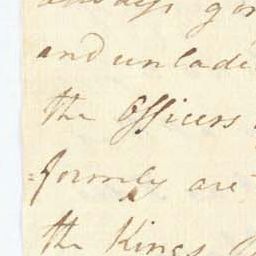 always
and unladi
the Officers
=formly are
the Kings